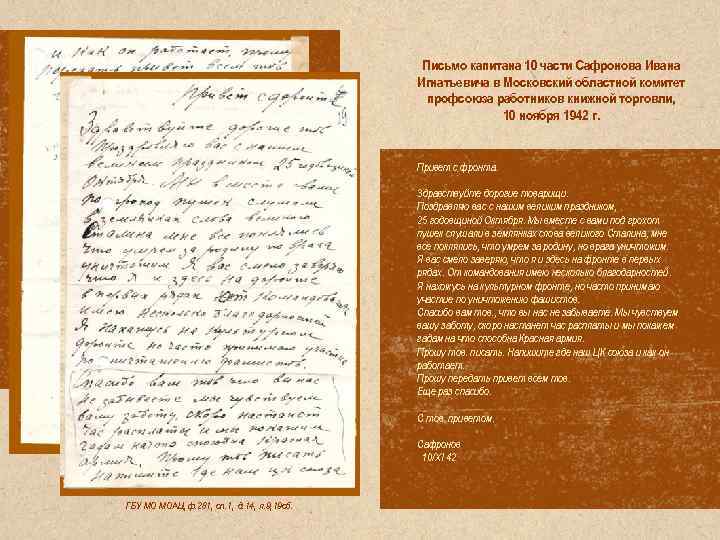 Письмо капитана 10 части Сафронова Ивана
Игнатьевича в Московский областной комитет
профсоюза работников книжной торговли,
10 ноября 1942 г.
и как он работает, прошу
передать привет всем тов
Привет с фронта
Здравствуйте дорогие тов
Поздравляю вас с нашим
великим праздником 25 годовщиной
Октября. Мы вместе с вами
под грохот пушек слушали
в землянках слова великого
Сталина мне все поклялись
что умрем за родину но врага
уничтожим Я вас смело заверяю
что я и здесь на фронте
в первых рядах От командования
имею несколько благодарностей
Я нахожусь на культурном
фронте но часто принимаю участие
по уничтожению фашистов.
Спасибо вам тов что вы нас
не забываете мы чувствуем
вашу заботу, скоро настанет
час расплаты и мы покажем
гадам на что способна Красная
армия. Прошу тов писать
Напишите где наш ЦК союза
Привет с фронта.
Здравствуйте дорогие товарищи.
Поздравляю вас с нашим великим праздником,
25 годовщиной Октября. Мы вместе с вами под грохот
пушек слушали в землянках слова великого Сталина, мне
все поклялись, что умрем за родину, но врага уничтожим.
Я вас смело заверяю, что я и здесь на фронте в первых
рядах. От командования имею несколько благодарностей.
Я нахожусь на культурном фронте, но часто принимаю
участие по уничтожению фашистов.
Спасибо вам тов., что вы нас не забываете. Мы чувствуем
вашу заботу, скоро настанет час расплаты и мы покажем
гадам на что способна Красная армия.
Прошу тов. писать. Напишите где наш ЦК союза и как он
работает.
Прошу передать привет всем тов.
Еще раз спасибо.
С тов. приветом,
Сафронов
10/XI 42
ГБУ МО МОАЦ, ф.281, оп.1, д.14, л.9,19об.